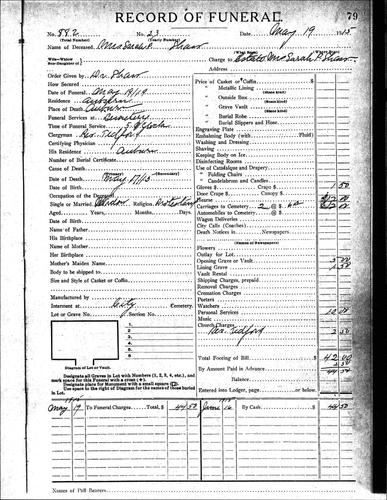 RECORD OF FUNERAL. 79
No. 882 No. 23 Date May 19 1915
(Total Number) (Yearly Number)
Name of Deceased, Mrs Sarah P. Shaw
Charge to Estate Mrs Sarah P Shaw
Address
Order Given by Dr. Shaw
How Secured
Date of Funeral May 19/19
Residence Auburn
Place of Death Auburn
Funeral Services at Cemetery
Time of Funeral Service
Clergyman Rev. Tedford
Certifying Physician
His Residence Auburn
Number of Burial Certificate
Cause of Death
Date of Death May 17/15
Date of Birth
Occupation of the Deceased
Single or Married Widow Religion Protestant
Aged, Years, Months, Days.
Name of Father
His Birthplace
Name of Mother
Her Birthplace
Mother's Maiden Name
Body to be shipped to
Size and Style of Casket or Coffin
Manufactured by
Interment at City Cemetery.
Lot or Grave No. Section No.
1.
2.
3.
4.
5.
6.
Diagram of Lot or Vault.
Designate all Graves in Lot with Numbers (1, 2, 3, 4, etc.), and
mark space for this Funeral with a cross (+).
Designate place for Monument with a small square (□).
Use space to the right of Diagram for the names of those buried
in the Lot.
Price of Casket or Coffin $
" Metallic Lining
" Outside Box
" Grave Vault
" Burial Robe
" Burial Slippers and Hose
Engraving Plate
Embalming Body (with Fluid)
Washing and Dressing
Shaving
Keeping Body on Ice
Disinfecting Rooms
Use of Catafalque and Drapery
" Folding Chairs
" Candelabrum and Candles
Gloves $ Crape $ 1 50
Door Crape $ Canopy $
Hearse 12 00
Carriages to Cemetery 2 @ $ 12 00
Automobiles to Cemetery @ $
Wagon Deliveries
City Calls (Coaches)
Death Notices in Newspapers
(Names of Newspapers)
Flowers
Outlay for Lot
Opening Grave or Vault 3 00
Lining Grave 1 50
Vault Rental
Shipping Charges, prepaid
Removal Charges
Cremation Charges
Porters
Watchers
Personal Services 10 00
Music
Church Charges
Rev. Tedford
Total Footing of Bill $ 42 00
By Amount Paid in Advance
Balance, $
Entered into Ledger, page or below.
May 19 To Funeral Charges, Total, $ 44 50 June 16 By Cash $ 44 50
Names of Pall Bearers